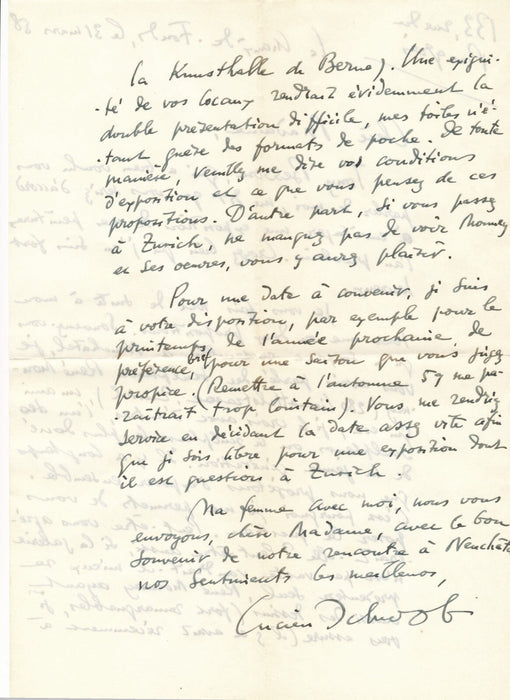 la Kunsthalle de Berne). Une exigui-
-té de vos locaux rendrait évidemment la
double présentation difficile, mes toiles n'é-
-tant guère des formats de poche. De toute
manière, veuillez me dire vos conditions
d'exposition et ce que vous pensez de ces
propositions. D'autre part, si vous passez
à Zurich, ne manquez pas de voir
et ses oeuvres, vous y aurez plaisir.
Pour une date à convenir, je suis
à votre disposition, par exemple pour le
printemps de l'année prochaine, de
préférence, bref pour une saison que vous jugez
propice. (Remettre à l'automne 59 me pa-
-raîtrait trop lointain). Vous me rendriez
service en décidant la date assez vite afin
que je sois libre, pour une exposition dont
il est question à Zurich.
Ma femme avec moi, nous vous
envoyons, chère Madame, avec le bon
souvenir de notre rencontre à Neuchâtel
nos sentiments les meilleurs,
Lucien Schwob